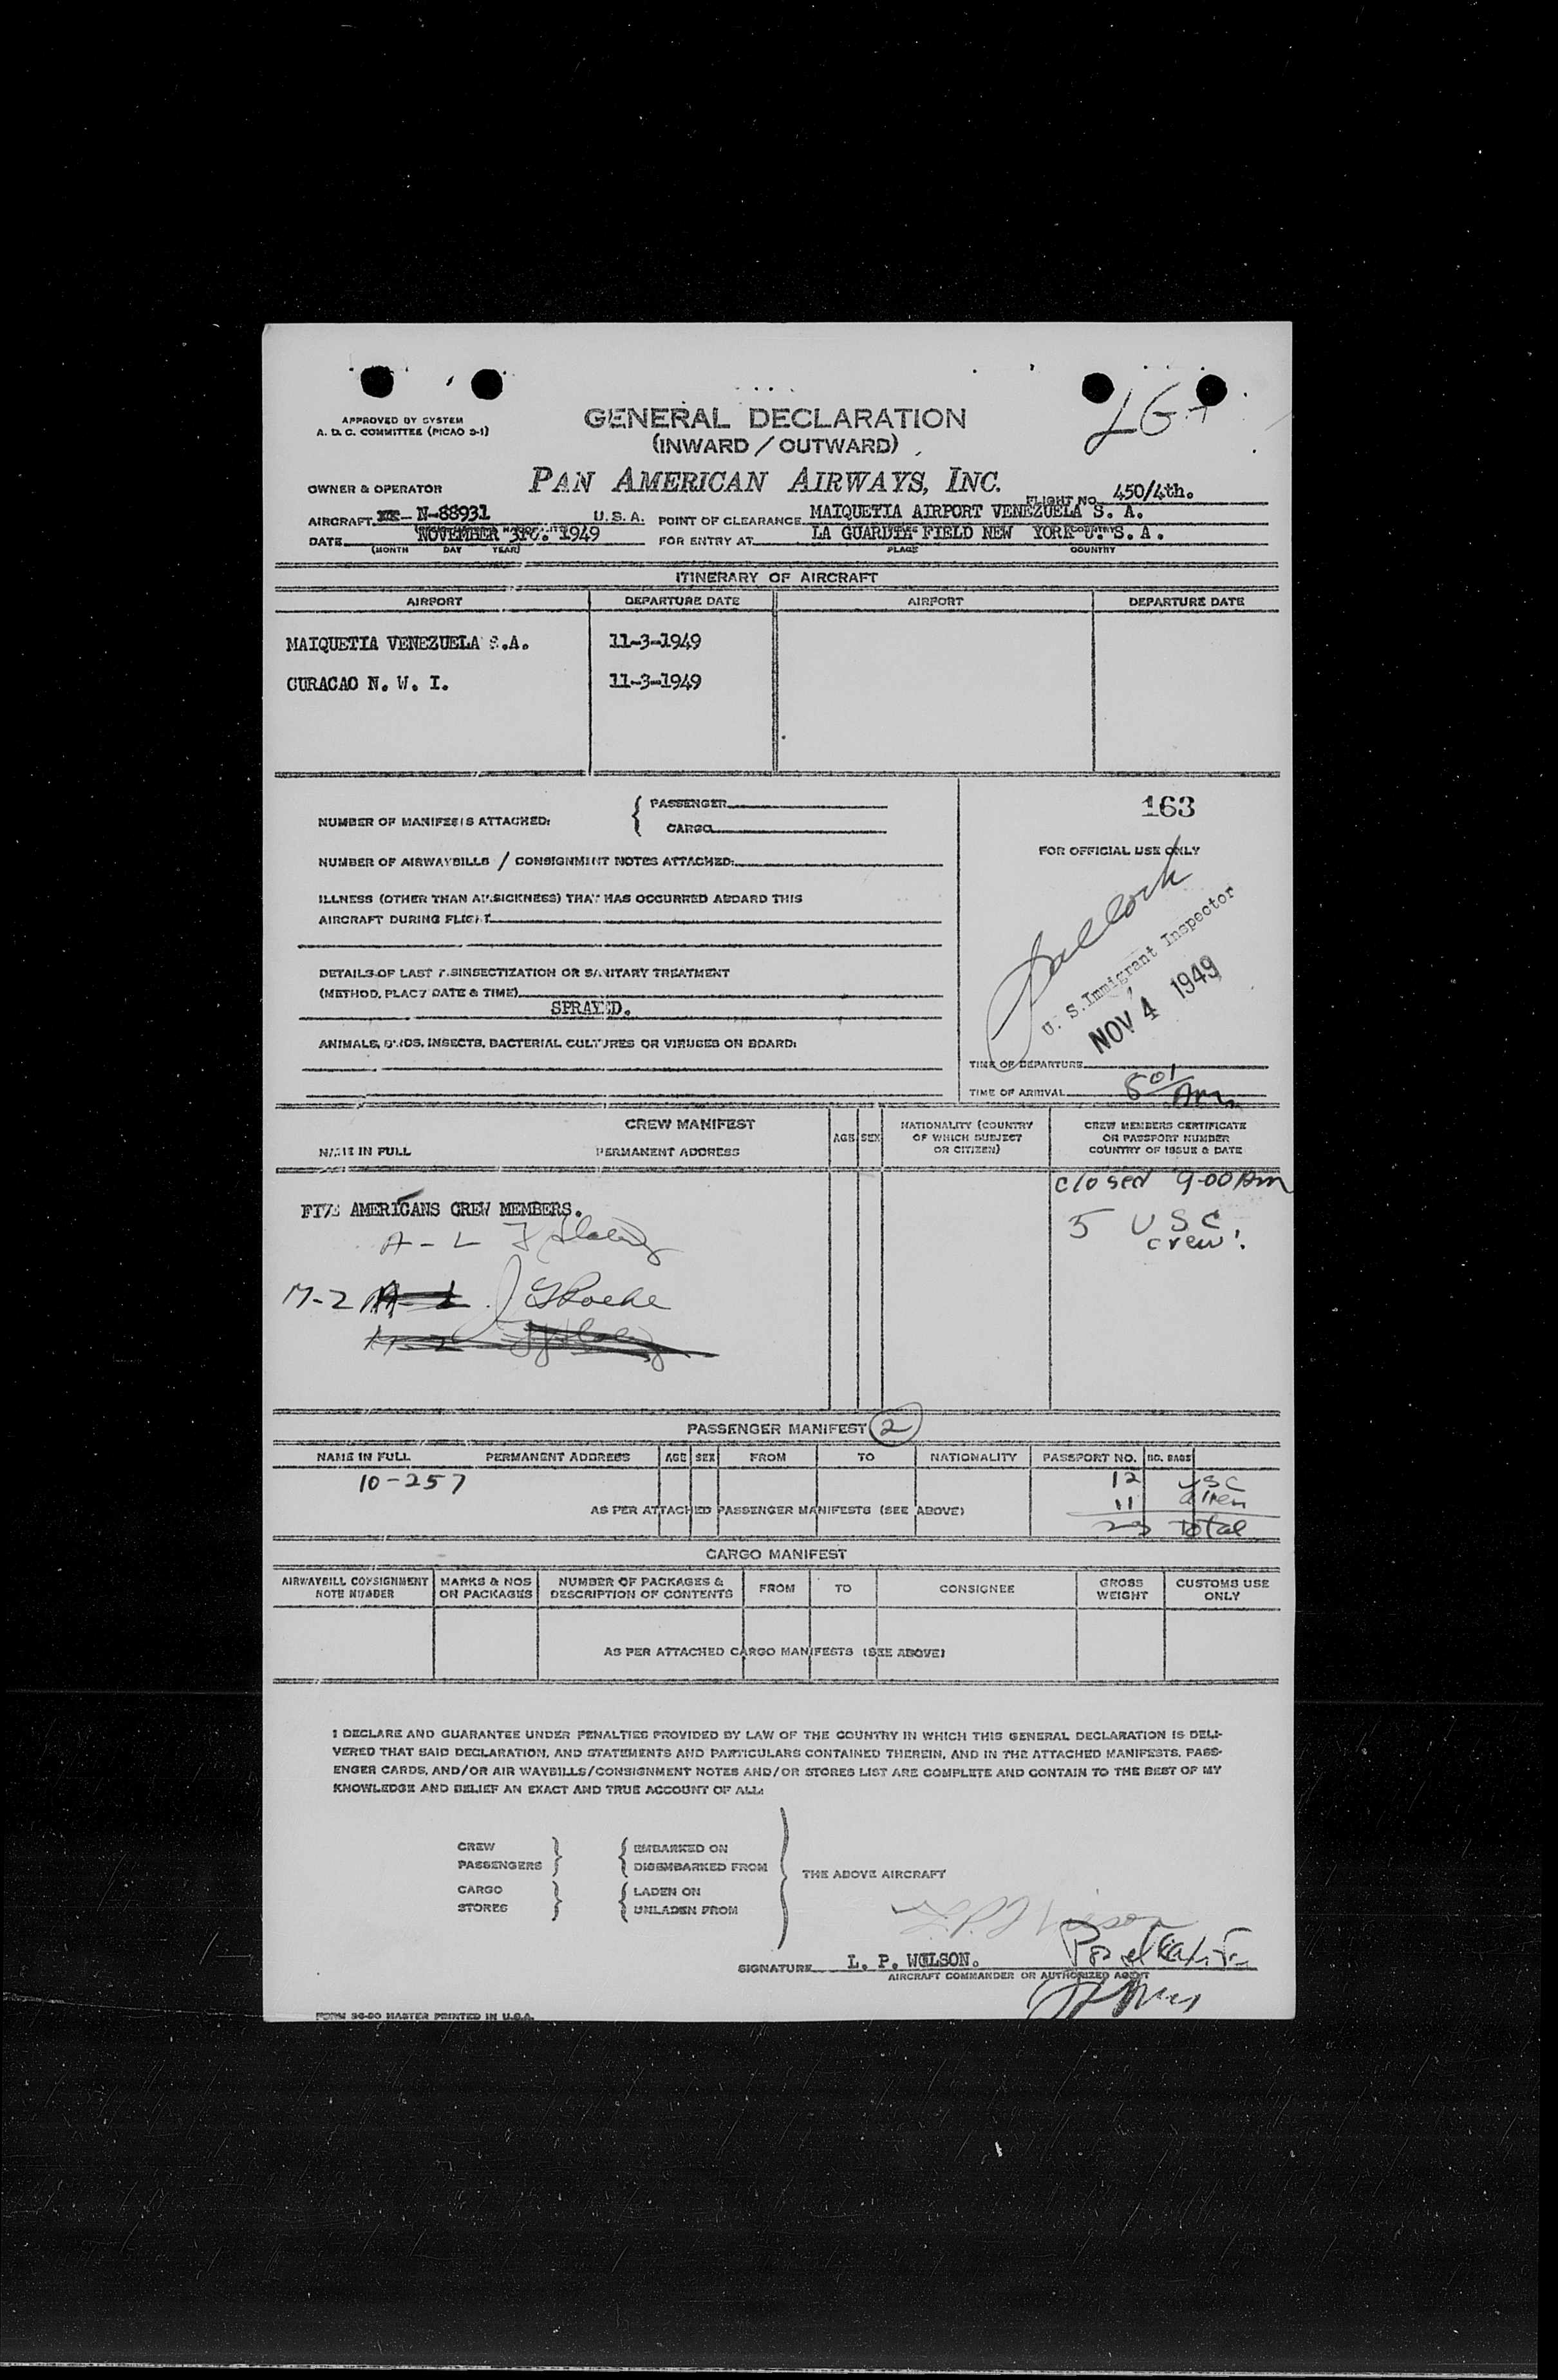 APPROVED BY SYSTEM
A. D. C. COMMITTEE (PICAO S-1)
GENERAL DECLARATION
(INWARD / OUTWARD)
OWNER & OPERATOR
PAN AMERICAN AIRWAYS, INC.
FLIGHT NO. 450/4th.
AIRCRAFT N-88931 U.S.A. POINT OF CLEARANCE MAIQUETIA AIRPORT VENEZUELA S. A.
DATE NOVEMBER 1949 FOR ENTRY AT LA GUARDIA FIELD NEW YORK U. S. A.
(MONTH DAY YEAR) PLACE COUNTRY
ITINERARY OF AIRCRAFT
AIRPORT DEPARTURE DATE AIRPORT DEPARTURE DATE
MAIQUETIA VENEZUELA S.A. 11-3-1949
CURACAO N. W. I. 11-3-1949
163
NUMBER OF MANIFESTS ATTACHED: { PASSENGER
CARGO
FOR OFFICIAL USE ONLY
NUMBER OF AIRWAYBILLS / CONSIGNMENT NOTES ATTACHED:
ILLNESS (OTHER THAN AIRSICKNESS) THAT HAS OCCURRED ABOARD THIS
AIRCRAFT DURING FLIGHT
U. S. Immigrant Inspector
NOV 4 1949
DETAILS OF LAST DISINSECTIZATION OR SANITARY TREATMENT
(METHOD, PLACE DATE & TIME)
SPRAYED.
ANIMALS, BIRDS, INSECTS, BACTERIAL CULTURES OR VIRUSES ON BOARD:
TIME OF DEPARTURE
TIME OF ARRIVAL 8 01 Am
CREW MANIFEST
NAME IN FULL PERMANENT ADDRESS AGE SEX NATIONALITY (COUNTRY OF WHICH SUBJECT OR CITIZEN) CREW MEMBERS CERTIFICATE OR PASSPORT NUMBER COUNTRY OF ISSUE & DATE
closed 9-00 Am
FIVE AMERICANS CREW MEMBERS.
5 USC
crew.
A-L
M-2
PASSENGER MANIFEST 2
NAME IN FULL PERMANENT ADDRESS AGE SEX FROM TO NATIONALITY PASSPORT NO. NO. BAGS
10-257 12 USC
AS PER ATTACHED PASSENGER MANIFESTS (SEE ABOVE) 11 alien
23 Total
CARGO MANIFEST
AIRWAYBILL CONSIGNMENT NOTE NUMBER MARKS & NOS ON PACKAGES NUMBER OF PACKAGES & DESCRIPTION OF CONTENTS FROM TO CONSIGNEE GROSS WEIGHT CUSTOMS USE ONLY
AS PER ATTACHED CARGO MANIFESTS (SEE ABOVE)
I DECLARE AND GUARANTEE UNDER PENALTIES PROVIDED BY LAW OF THE COUNTRY IN WHICH THIS GENERAL DECLARATION IS DELI-
VERED THAT SAID DECLARATION, AND STATEMENTS AND PARTICULARS CONTAINED THEREIN, AND IN THE ATTACHED MANIFESTS, PASS-
ENGER CARDS, AND/OR AIR WAYBILLS/CONSIGNMENT NOTES AND/OR STORES LIST ARE COMPLETE AND CONTAIN TO THE BEST OF MY
KNOWLEDGE AND BELIEF AN EXACT AND TRUE ACCOUNT OF ALL:
CREW } { EMBARKED ON
PASSENGERS DISEMBARKED FROM } THE ABOVE AIRCRAFT
CARGO } { LADEN ON
STORES UNLADEN FROM
SIGNATURE L. P. WOLSON.
AIRCRAFT COMMANDER OR AUTHORIZED AGENT
FORM 36-80 MASTER PRINTED IN U.S.A.